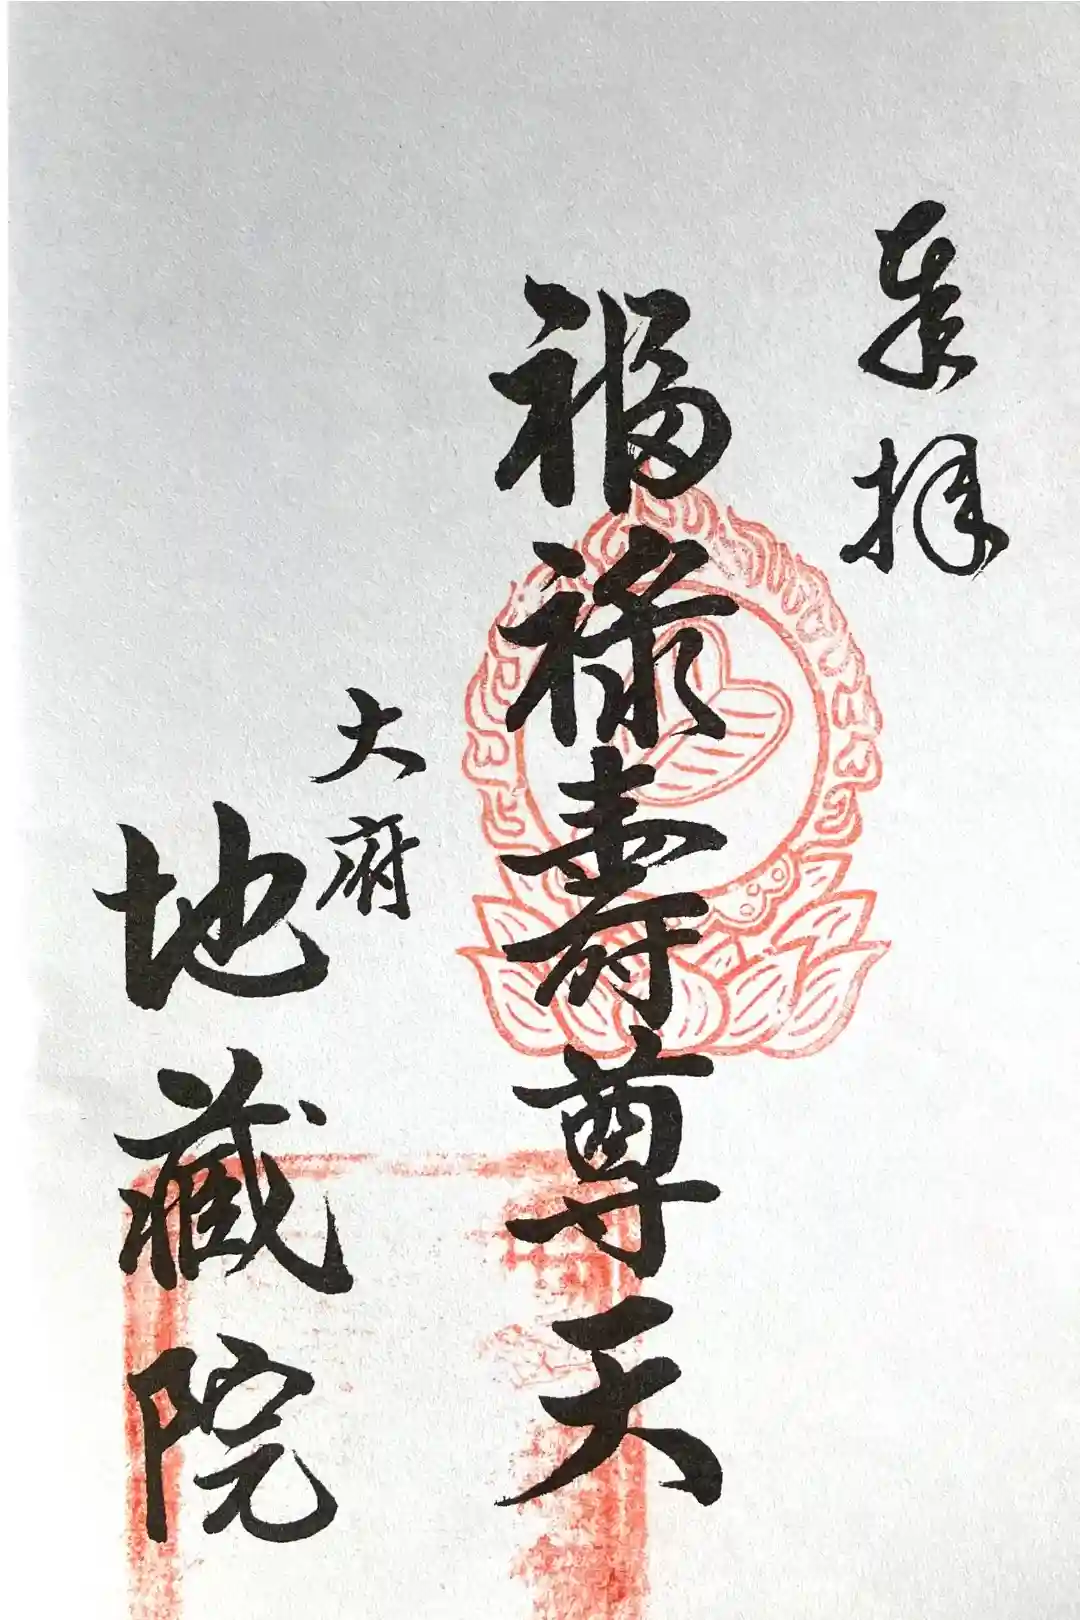 奉拝
福禄寿尊天
大府
地蔵院